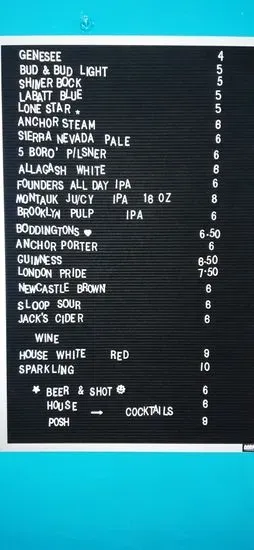 GENESEE 4
BUD & BUD LIGHT 5
SHINER BOCK 5
LABATT BLUE 5
LONE STAR ★ 5
ANCHOR STEAM 6
SIERRA NEVADA PALE 6
5 BORO' PILSNER 6
ALLAGASH WHITE 8
FOUNDERS ALL DAY IPA 6
MONTAUK JUICY IPA 16 OZ 8
BROOKLYN PULP IPA 6
BODDINGTONS ♥ 6-50
ANCHOR PORTER 6
GUINNESS 6-50
LONDON PRIDE 7-50
NEWCASTLE BROWN 6
SLOOP SOUR 8
JACK'S CIDER 6
WINE
HOUSE WHITE RED 9
SPARKLING 10
★ BEER & SHOT ☻ 6
HOUSE 8
→ COCKTAILS
POSH 9